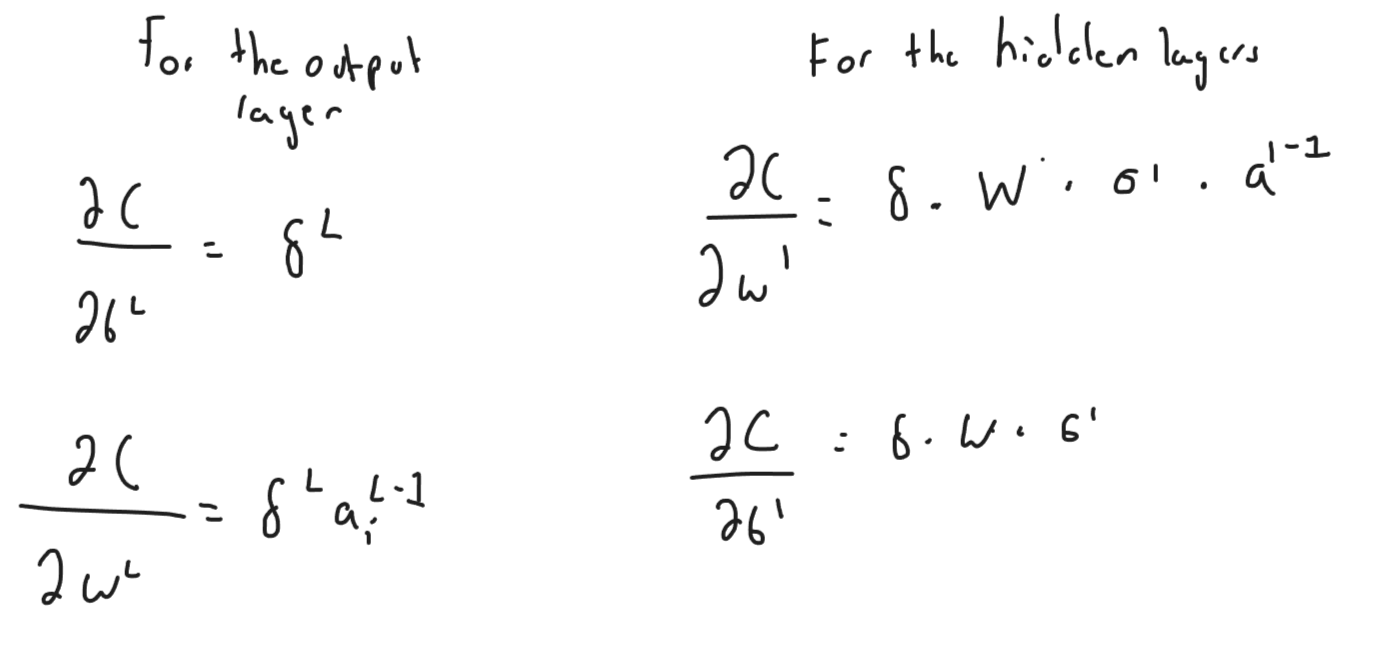 For the output
layer
∂C/∂b^L = δ^L
∂C/∂w^L = δ^L a_i^{L-1}
For the hidden layers
∂C/∂w^l = δ · W · σ' · a^{l-1}
∂C/∂b^l = δ · W · σ'